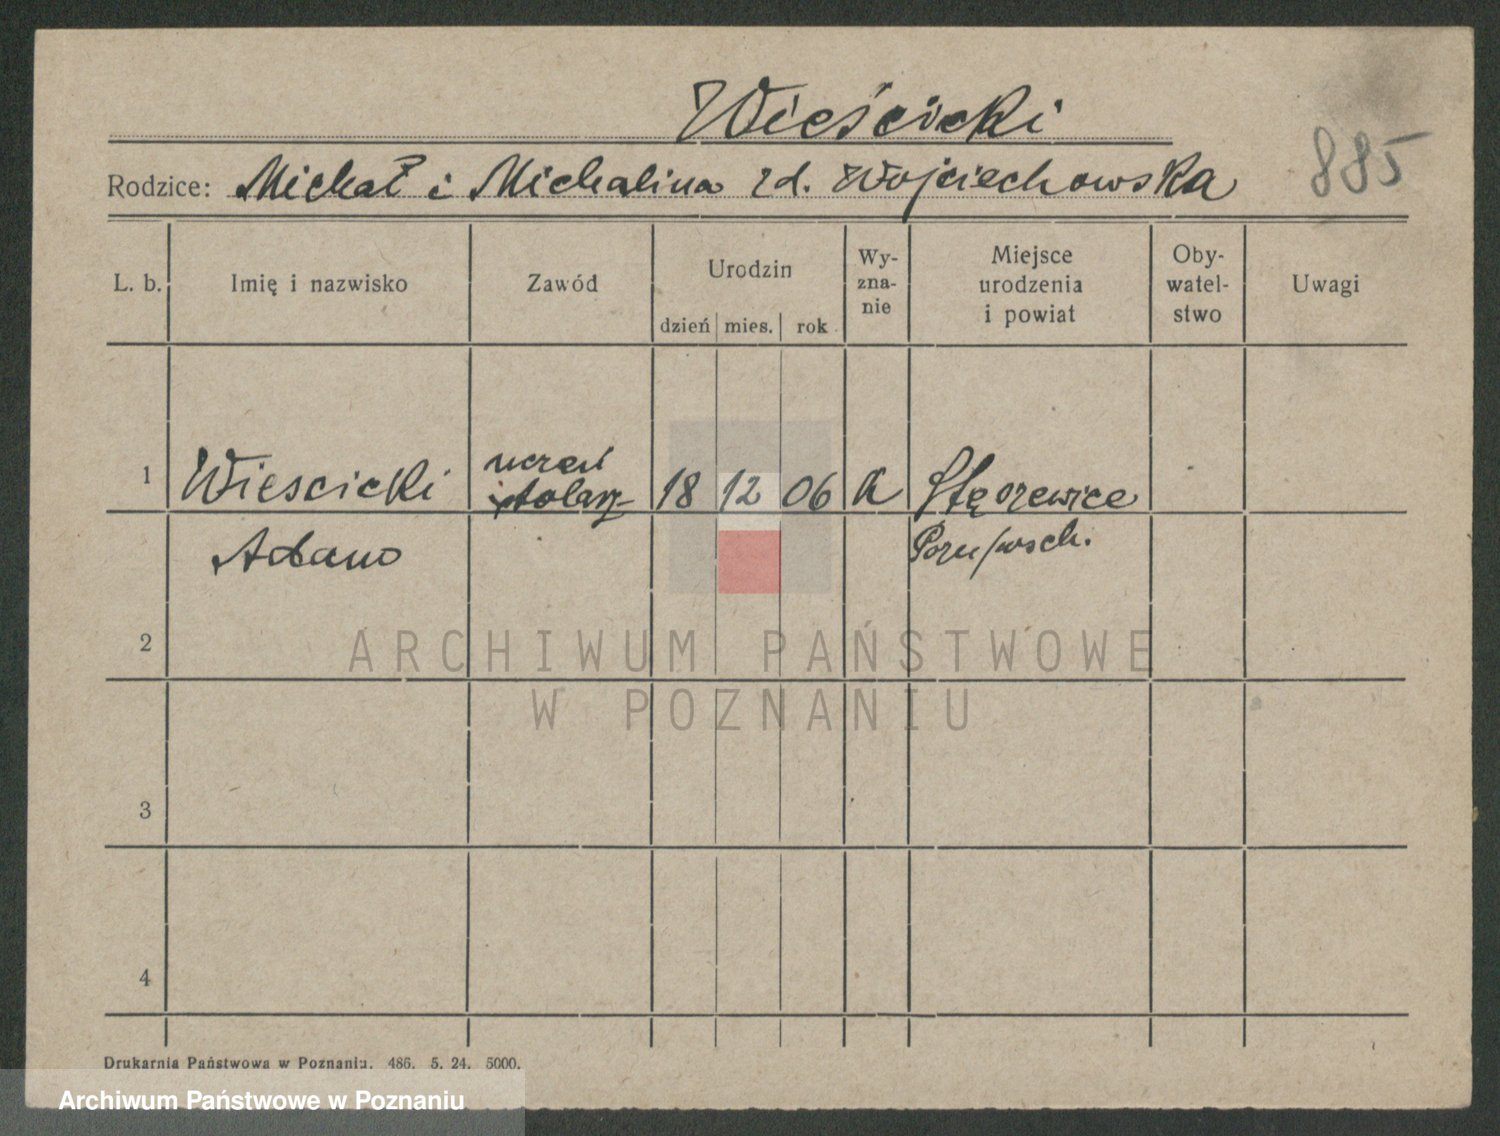 Wieścicki
885
Rodzice: Michał i Michalina zd. Wojciechowska
L. b. Imię i nazwisko Zawód Urodzin dzień mies. rok Wy-zna-nie Miejsce urodzenia i powiat Oby-watel-stwo Uwagi
1 Wiescicki uczeń 18 12 06 K Stęszewice
stolarz
Pozn/wsch.
2
ARCHIWUM PAŃSTWOWE
W POZNANIU
3
4
Drukarnia Państwowa w Poznaniu. 486. 5. 24. 5000.
Archiwum Państwowe w Poznaniu